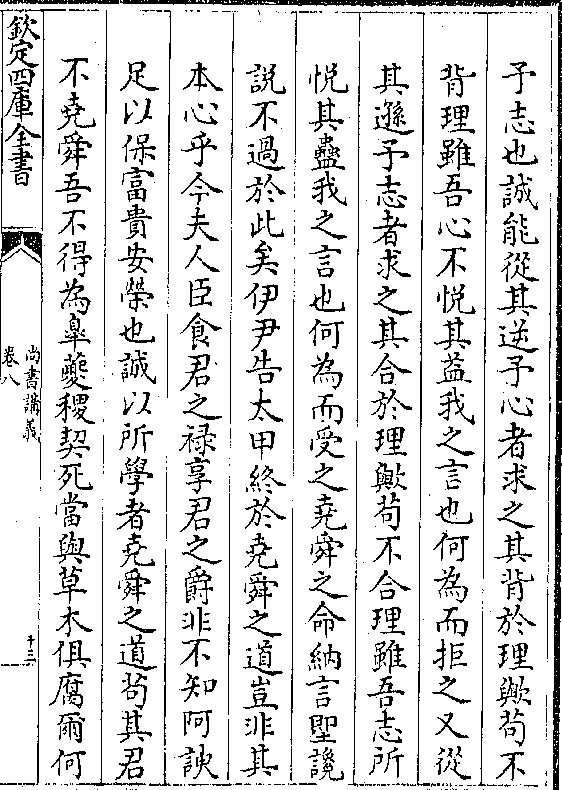 予志也誠能從其逆予心者求之其背於理歟苟不
背理雖吾心不悦其益我之言也何為而拒之又從
其遜予志者求之其合於理歟苟不合理雖吾志所
悦其蠱我之言也何為而受之堯舜之命納言聖讒
說不過於此矣伊尹告太甲終於堯舜之道豈非其
本心乎今夫人臣食君之禄享君之爵非不知阿諛
足以保富貴安榮也誠以所學者堯舜之道苟其君
不堯舜吾不得為臯夔稷契死當與草木俱腐爾何
欽定四庫全書
尚書講義
卷八
十三